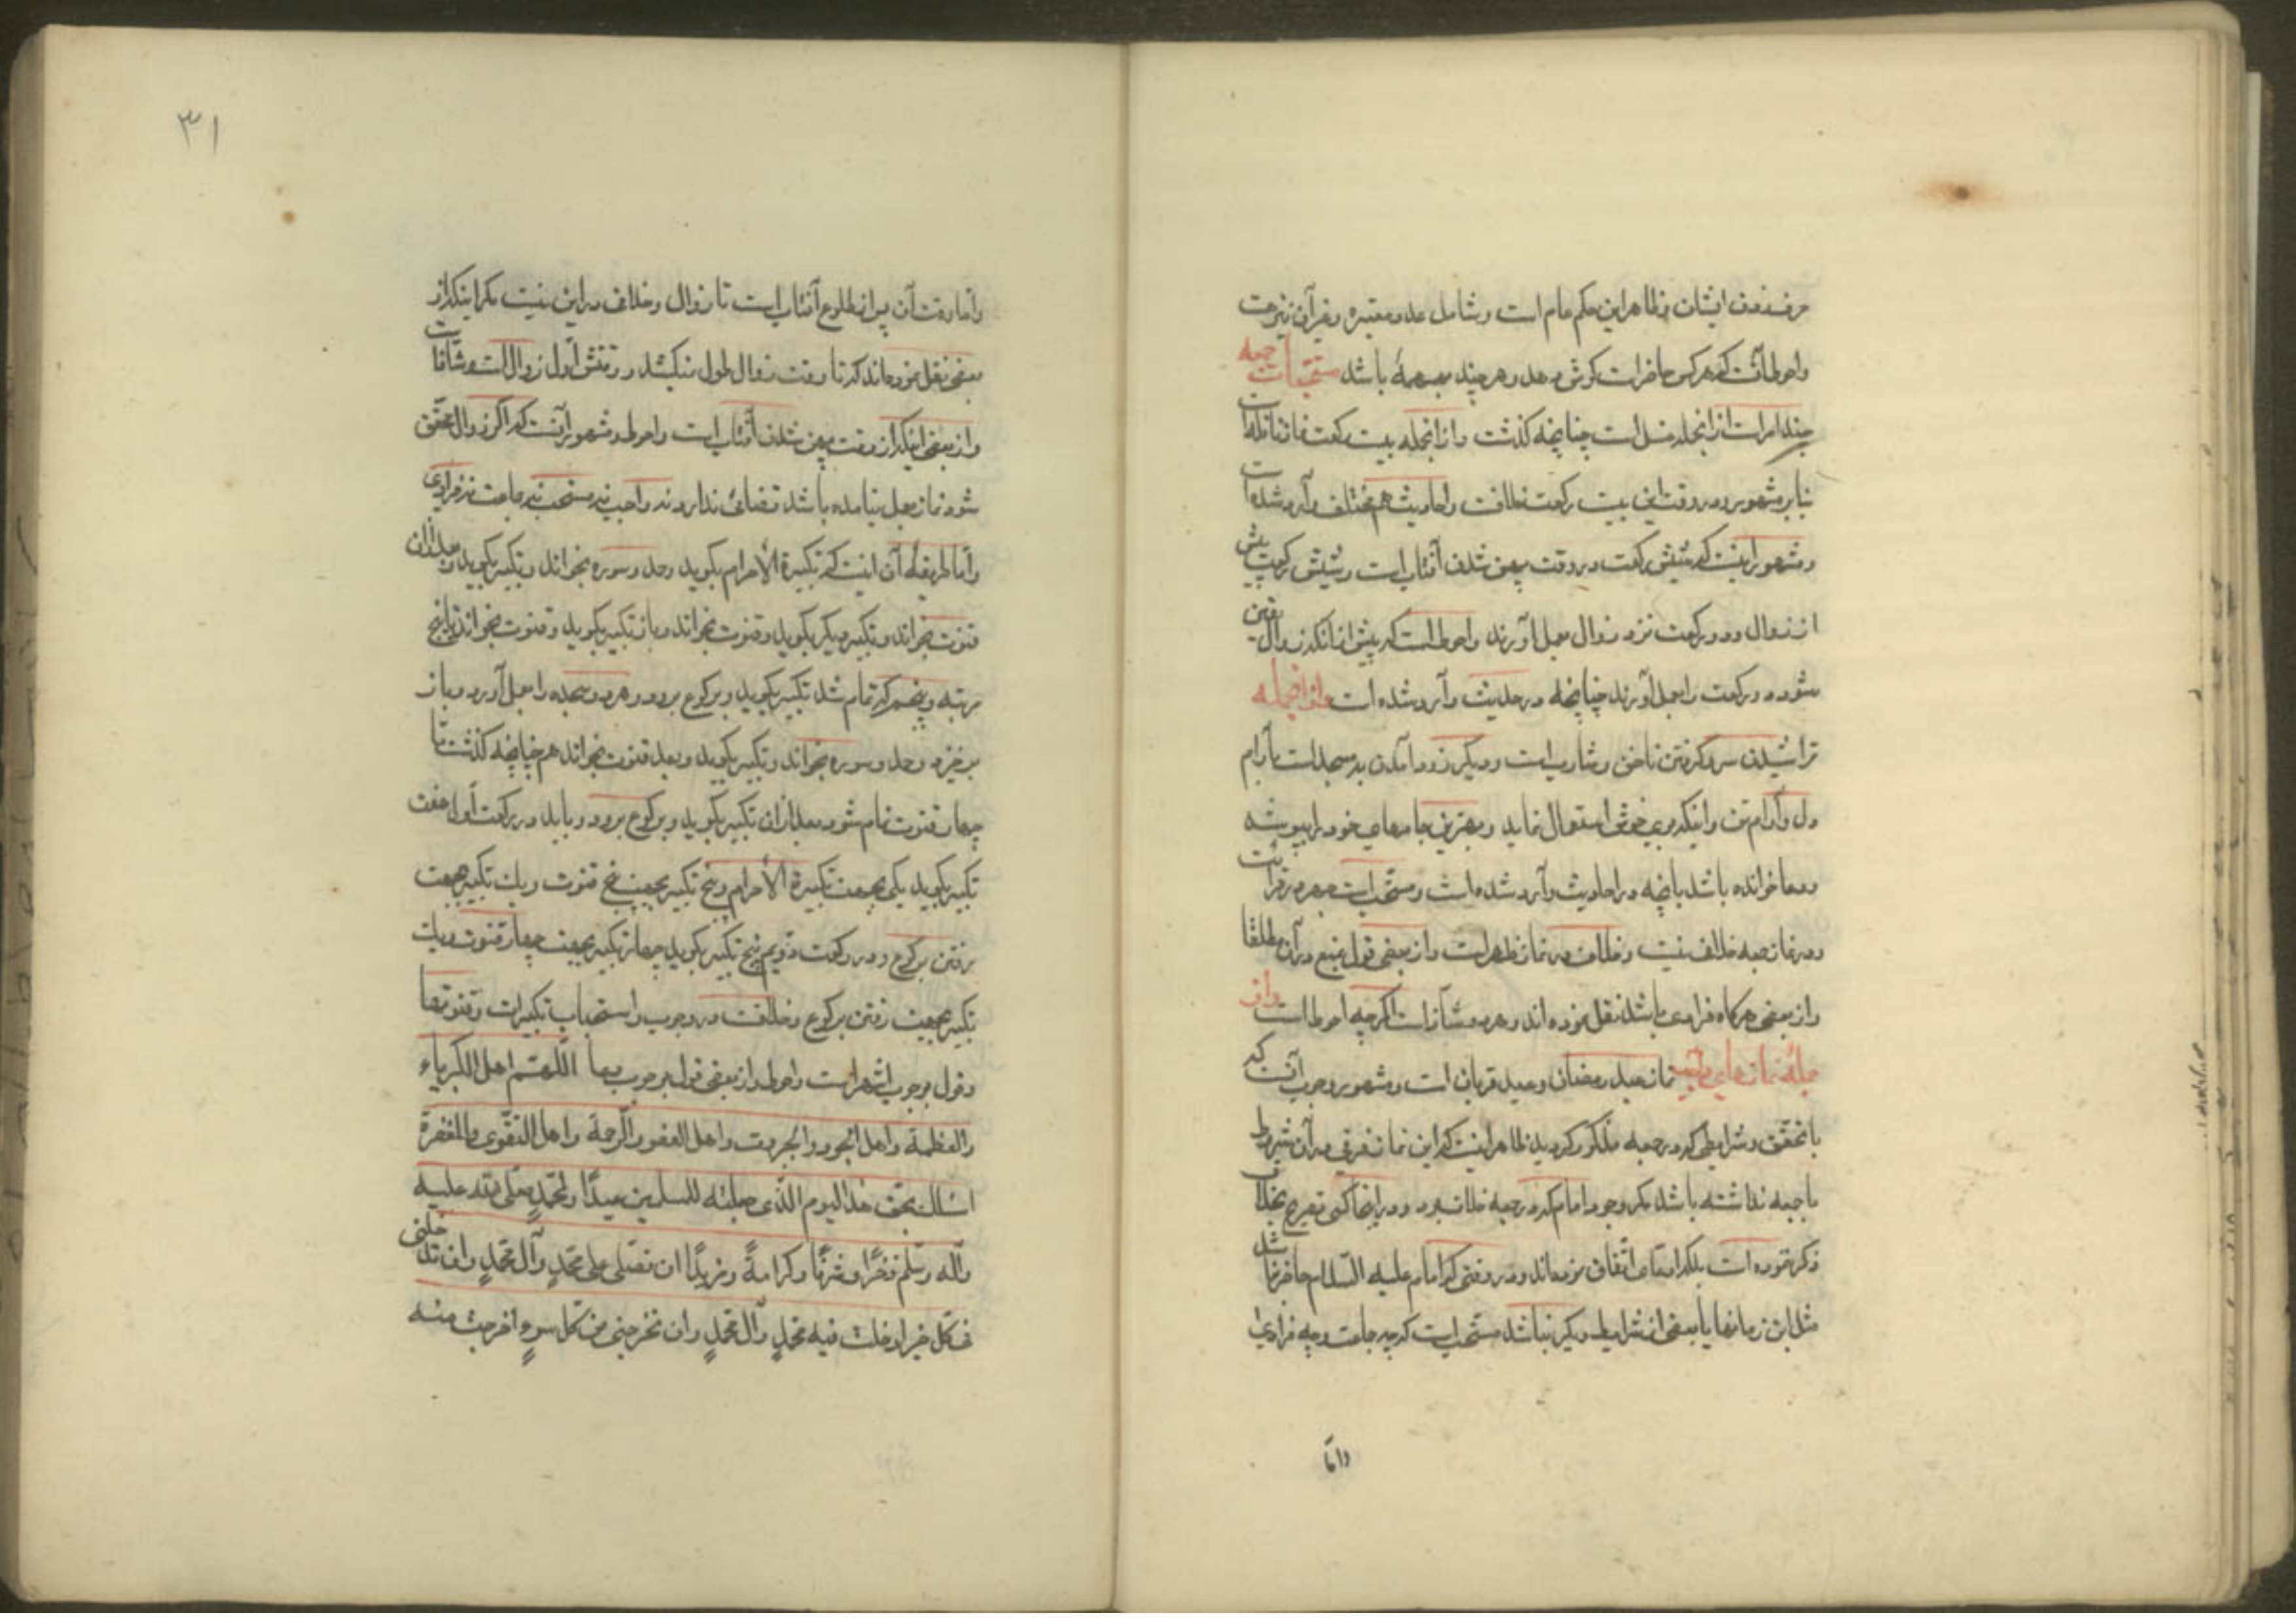 حرف زدن ایشان و ظاهر این حکم عام است و شامل عدد معتبره و غیر آن نیز هست
و احوط آنست که هر کس حاضر است گوش دهد و هر چند باشد مستحبات جمعه
چند امر است از انجمله غسل است چنانچه گذشت و از انجمله بیست رکعت نماز نافله است
بنا بر مشهور و در وقت این بیست رکعت خلافست و احادیث هم مختلف وارد شده است
و مشهور اینست که شش رکعت در وقت پهن شدن آفتاب است و شش رکعت پیش
از زوال و دو رکعت نزد زوال بعمل آورند و احوط آنست که پیش از آنکه زوال یقین
شود دو رکعت را بعمل آورند چنانچه در حدیث وارد شده است و از انجمله
تراشیدن سر و گرفتن ناخن و شارب است و دیگر زود آمدن به مسجد است بآرام
دل و آرام تن و اینکه بوی خوش استعمال نماید و بهترین جامهای خود را بپوشد
و دعا خوانده باشد بانچه در احادیث وارد شده است و مستحب است جهر در قرائت
در نماز جمعه خلاف نیست و خلاف در نماز ظهر است و از بعضی قول بمنع در آن مطلقا
و از بعضی هرگاه فرادی باشد نقل نموده اند و هر دو شاذ است اگر چه احوط است و از
جمله نمازهای واجب نماز عید رمضان و عید قربان است و مشهور وجوب آنست که
با تحقق شرایطی که در جمعه مذکور گردید ظاهر اینست که این نماز فرقی در آن شروط
با جمعه نداشته باشد مگر وجود امام که در جمعه خلاف بود و در اینجا کسی تصریح بخلاف
ذکر ننموده است بلکه ادعای اتفاق نموده‌اند و در وقتی که امام علیه السلام حاضر نباشد
مثل این زمانها یا بعضی از شرایط دیگر نباشد مستحب است که چه جماعت و چه فرادی
و اما
۳۱
و اما وقت آن پس از طلوع آفتاب است تا زوال و خلاف در این نیست مگر اینکه از
بعضی نقل نموده‌اند که تا وقت زوال طول نکشد و وقتش اول زوال است و شاذ است
و از بعضی اینکه از وقت پهن شدن آفتاب است و احوط و مشهور آنست که اگر زوال محقق
شود نماز بعمل نیامده باشد قضائی ندارد نه واجب نه مستحب نه جماعت نه فرادی
و اما طریقه آن اینست که تکبیرة الاحرام بگوید و حمد و سوره بخواند و تکبیر بگوید و بعد از آن
قنوت بخواند و تکبیر دیگر بگوید و قنوت بخواند و باز تکبیر بگوید و قنوت بخواند تا پنج
مرتبه و پنجم که تمام شد تکبیر بگوید و برکوع برود و هر دو سجده را بعمل آورد و باز
برخیزد و حمد و سوره بخواند و تکبیر بگوید و بعد قنوت بخواند هم چنانچه گذشت تا
چهار قنوت تمام شود بعد از آن تکبیر بگوید و برکوع برود و باید در رکعت اول هفت
تکبیر بگوید یکی بجهت تکبیرة الاحرام و پنج تکبیر بجهت پنج قنوت و یک تکبیر بجهت
رفتن برکوع و در رکعت دویم پنج تکبیر بگوید چهار تکبیر بجهت چهار قنوت و یک
تکبیر بجهت رفتن برکوع و خلافست در وجوب و استحباب تکبیرات و قنوتها
و قول بوجوب اشهر است و احوط و از بعضی قول بوجوب اللهم اهل الکبریاء
والعظمة واهل الجود والجبروت واهل العفو والرحمة واهل التقوی والمغفرة
اسئلک بحق هذا الیوم الذی جعلته للمسلمین عیدًا ولمحمدٍ صلی الله علیه
وآله وسلم ذخرًا وشرفًا وکرامةً ومزیدًا ان تصلی علی محمدٍ وآل محمدٍ وان تدخلنی
فی کل خیر ادخلت فیه محمدٍ وآل محمدٍ وان تخرجنی من کل سوءٍ اخرجت منه